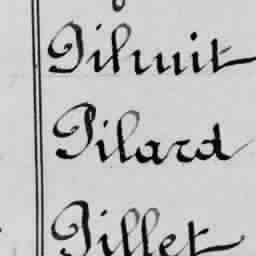 Pihuit
Pilard
Pillet